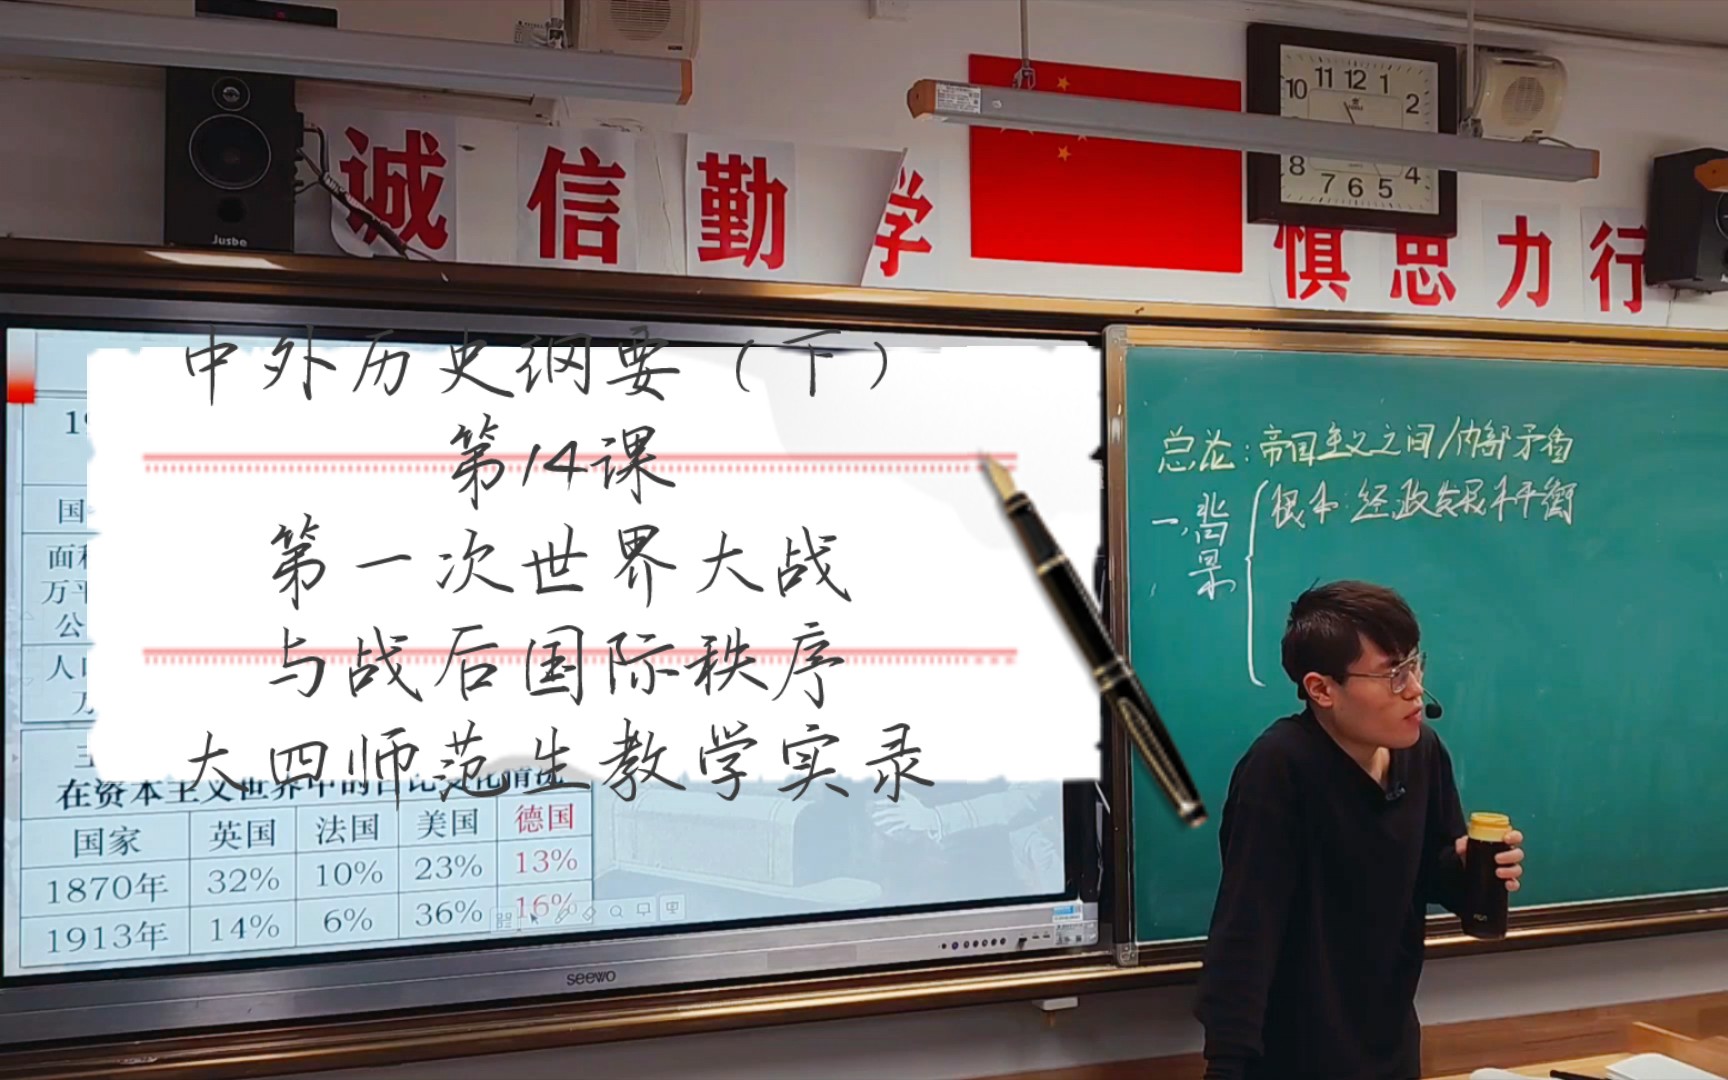 诚信勤学
慎思力行
11 12 1
10 2
8 4
7 6 5
Jusbe
中外历史纲要（下）
第14课
第一次世界大战
与战后国际秩序
大四师范生教学实录
国
万平
公
人口
在资本主义世界中的占比变化情况
国家 英国 法国 美国 德国
1870年 32% 10% 23% 13%
1913年 14% 6% 36% 16%
seewo
总论：帝国主义之间/内部矛盾
一、背景
根本：经、政发展不平衡